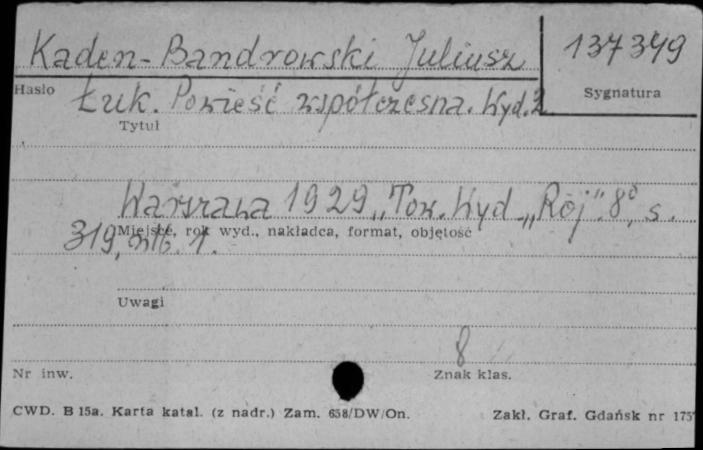 Kaden-Bandrowski Juliusz 137349
Hasło Łuk. Powieść współczesna. Wyd. 2 Sygnatura
Tytuł
Warszawa 1929 „Tow. Wyd. „Rój”. 8°, s.
319, nlb. 1. Miejsce, rok wyd., nakładca, format, objętość
Uwagi
8
Nr inw. Znak klas.
CWD. B 15a. Karta katal. (z nadr.) Zam. 658/DW/On. Zakł. Graf. Gdańsk nr 175